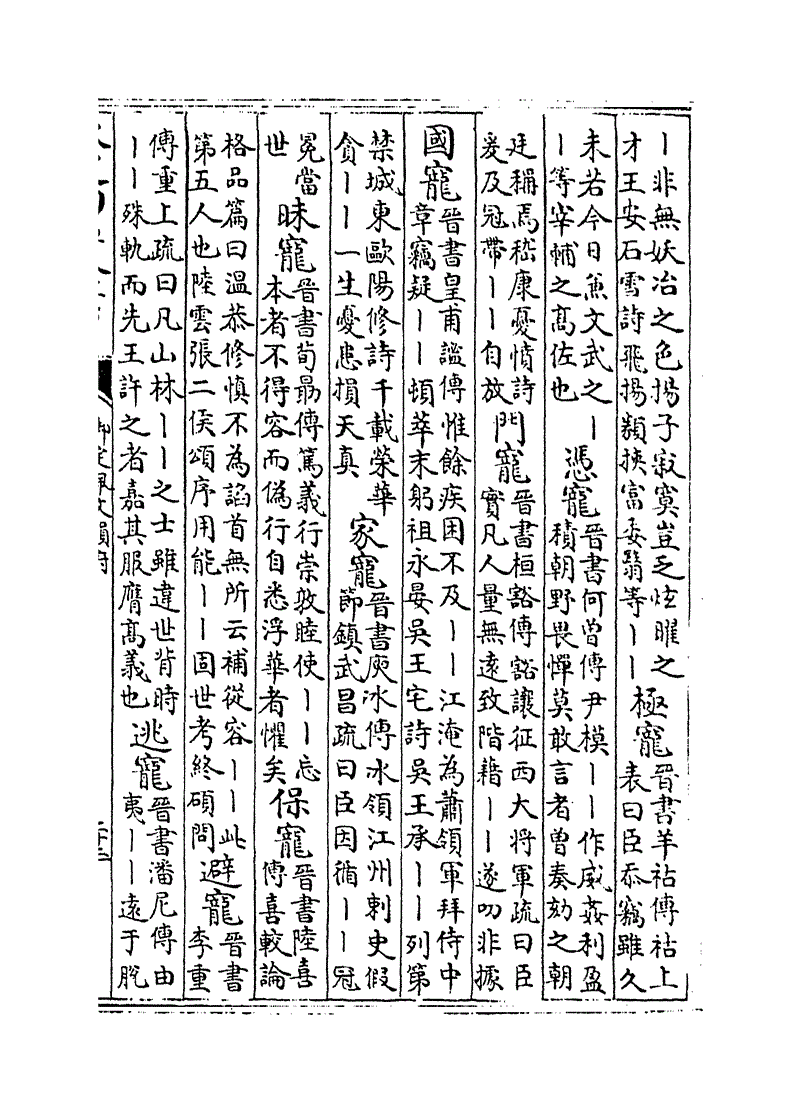 ｜非無妖冶之色揚子寂寞豈乏炫曜之
才王安石雪詩飛揚類挾富委翳等｜｜
極寵
晉書羊祜傳祜上
表曰臣忝竊雖久
未若今日兼文武之｜
｜等宰輔之髙佐也
憑寵
晉書何曾傳尹模｜｜作威姦利盈
積朝野畏憚莫敢言者曾奏劾之朝
廷稱焉嵇康憂憤詩
爰及冠帶｜｜自放
門寵
晉書桓豁傳豁讓征西大將軍疏曰臣
實凡人量無逺致階藉｜｜遂叨非據
國寵
晉書皇甫謐傳惟餘疾困不及｜｜江淹為蕭領軍拜侍中
章竊疑｜｜頓萃末躬祖永晏吳王宅詩吳王承｜｜列第
禁城東歐陽修詩千載榮華
貪｜｜一生憂患損天真
家寵
晉書庾冰傳冰領江州刺史假
節鎮武昌疏曰臣因循｜｜冠
冕當
世
昧寵
晉書荀勗傳篤義行崇敦睦使｜｜忘
本者不得容而偽行自悉浮華者懼矣
保寵
晉書陸喜
傳喜較論
格品篇曰溫恭修慎不為諂首無所云補從容｜｜此
第五人也陸雲張二侯頌序用能｜｜固世考終碩問
避寵
晉書
李重
傳重上疏曰凡山林｜｜之士雖違世背時
｜｜殊軌而先王許之者嘉其服膺髙義也
逃寵
晉書潘尼傳由
夷｜｜逺于脫
御定佩文韻府